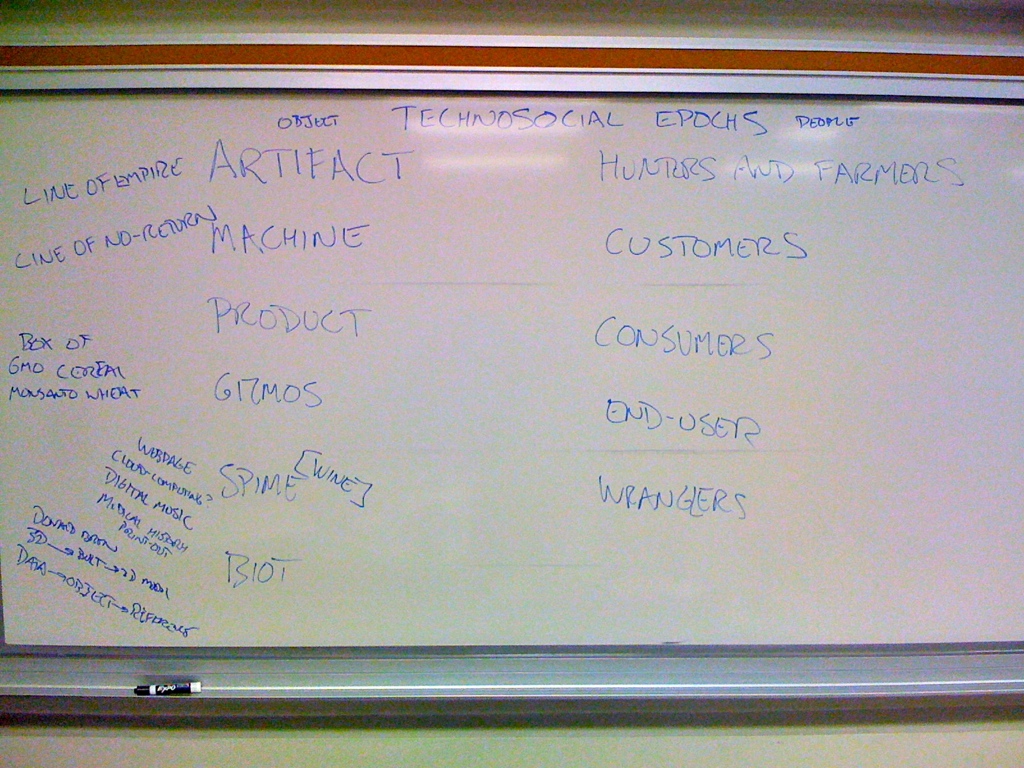 OBJECT TECHNOSOCIAL EPOCHS PEOPLE
LINE OF EMPIRE ARTIFACT HUNTERS AND FARMERS
LINE OF NO-RETURN MACHINE CUSTOMERS
PRODUCT CONSUMERS
BOX OF
GMO CEREAL
MONSANTO WHEAT
GIZMOS END-USER
WEBPAGE
CLOUD-COMPUTING
DIGITAL MUSIC
MEDICAL HISTORY
PRINT-OUT
SPIME [WINE] WRANGLERS
DONALD
3D → BUILT → 2D MODEL
DATA → OBJECT → REFERENCE
BIOT
EXPO